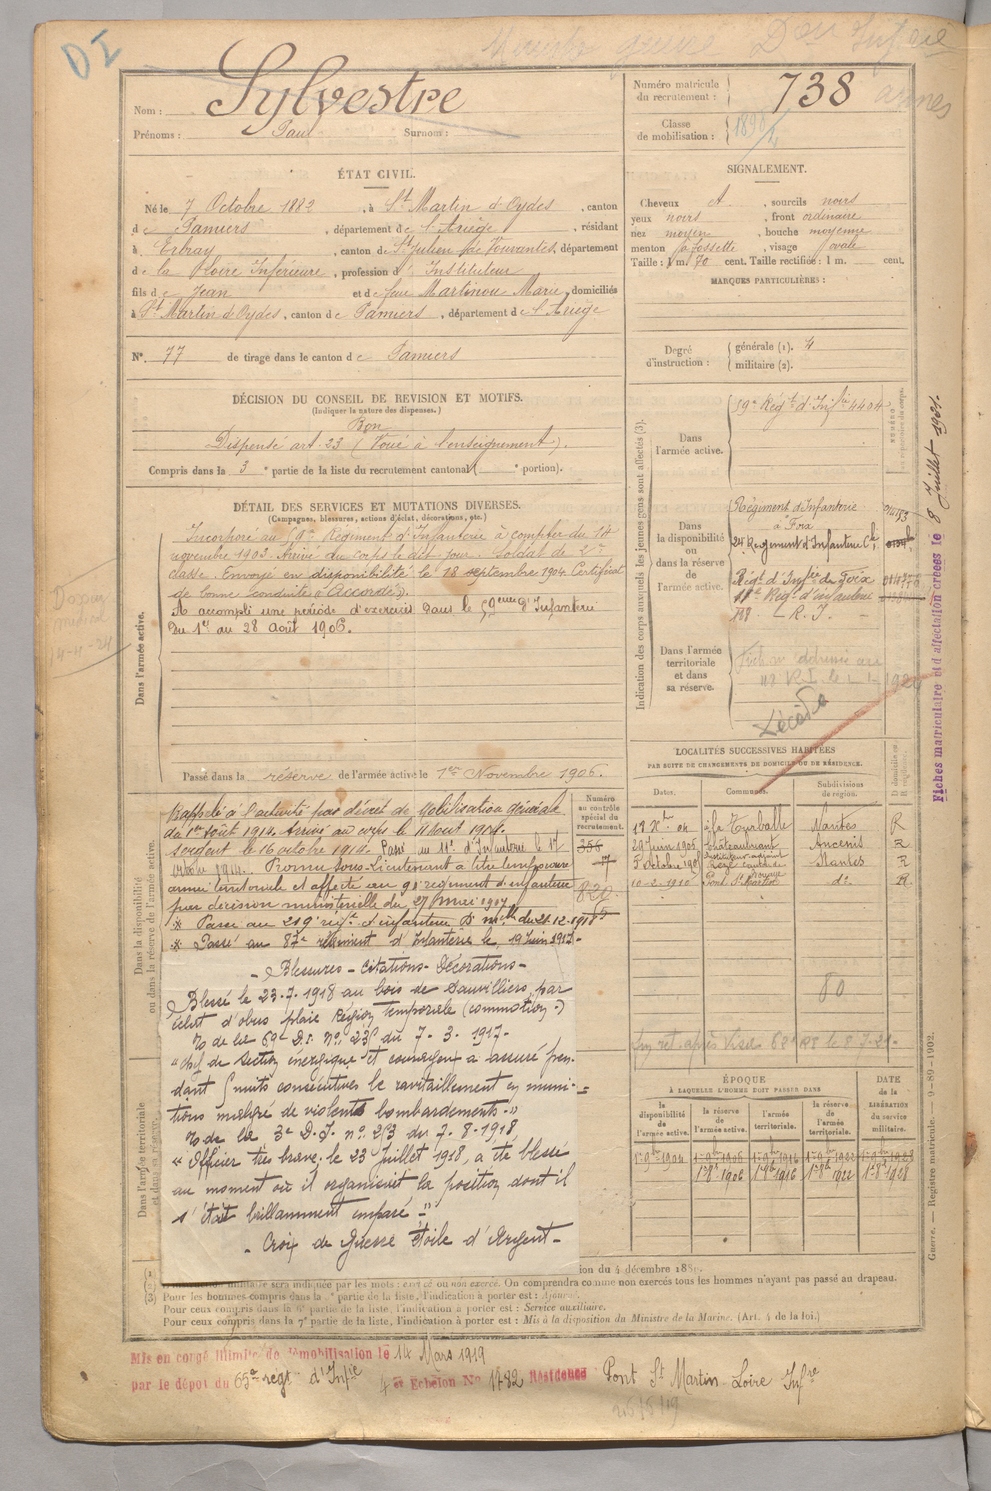 DI
Nom : Sylvestre
Prénoms : Paul Surnom :
Numéro matricule du recrutement : 738
Classe de mobilisation :
ÉTAT CIVIL.
Né le 7 Octobre 1882, à St Martin d'Oydes, canton
de Pamiers, département de l'Ariège, résidant
à Erbray, canton de St Julien de Vouvantes, département
de la Loire Inférieure, profession d'Instituteur
fils de Jean et de feue Martinou Marie, domiciliés
à St Martin d'Oydes, canton de Pamiers, département de l'Ariège
N° 77 de tirage dans le canton de Pamiers
SIGNALEMENT.
Cheveux ct., sourcils noirs
yeux noirs, front ordinaire
nez moyen, bouche moyenne
menton à fossette, visage ovale
Taille : 1 m. 70 cent. Taille rectifiée : 1 m. cent.
MARQUES PARTICULIÈRES :
Degré d'instruction : générale (1). 4
militaire (2).
DÉCISION DU CONSEIL DE REVISION ET MOTIFS.
(Indiquer la nature des dispenses.)
Bon
Dispensé art. 23 (Voué à l'enseignement).
Compris dans la 3e partie de la liste du recrutement cantonal ( e portion).
DÉTAIL DES SERVICES ET MUTATIONS DIVERSES.
(Campagnes, blessures, actions d'éclat, décorations, etc.)
Dans l'armée active.
Incorporé au 59e Régiment d'Infanterie à compter du 14
novembre 1903. Arrivé au corps le dit jour. Soldat de 2e
classe. Envoyé en disponibilité le 18 septembre 1904. Certificat
de bonne conduite "Accordé".
A accompli une période d'exercices dans le 59eme d'Infanterie
du 1er au 28 Août 1906.
Passé dans la réserve de l'armée active le 1er Novembre 1906.
Dans la disponibilité ou dans la réserve de l'armée active.
Rappelé à l'activité par décret de Mobilisation générale
du 1er août 1914. Arrivé au corps le 11 Août 1914.
Sergent le 16 octobre 1914. Passé au 11e d'Infanterie le 1er
octobre 1914. Promu Sous-Lieutenant à titre temporaire
armée territoriale et affecté au 91e régiment d'infanterie
par décision ministérielle du 27 mai 1917.
* Passé au 219e régt d'infanterie D. mlle du 21.12.1918
* Passé au 87e régiment d'Infanterie le 19 Juin 1917.
Numéro au contrôle spécial du recrutement.
356
820
- Blessures - Citations - Décorations -
Blessé le 23-7-1918 au bois de Sauvilliers par
éclat d'obus plaie Région temporale (commotion.)
"Chef de Section énergique et courageux a assuré pen-
dant 5 nuits consécutives le ravitaillement en muni-
tions malgré de violents bombardements."
"Officier très brave, le 23 Juillet 1918, a été blessé
au moment où il organisait la position dont il
s'était brillamment emparé."
- Croix de Guerre Étoile d'Argent -
Dans l'armée territoriale
Indication des corps auxquels les jeunes gens sont affectés (3).
Dans l'armée active.
59e Régt d'Infie 4404
Dans la disponibilité ou dans la réserve de l'armée active.
Régiment d'Infanterie
à Foix
Régt d'Infie de Foix
11e Régt d'infanterie
Dans l'armée territoriale et dans sa réserve.
Fiches matriculaire et d'affectation créées le 8 Juillet 1921.
LOCALITÉS SUCCESSIVES HABITÉES
PAR SUITE DE CHANGEMENTS DE DOMICILE OU DE RÉSIDENCE.
Dates. Communes. Subdivisions de région.
12 Xbre 04 à la Turballe Nantes R
29 Juin 1905 Châteaubriant Ancenis R
5 Octobre Nantes R
10-2-1910 Pont St Martin do. R.
80
ÉPOQUE
À LAQUELLE L'HOMME DOIT PASSER DANS
la disponibilité de l'armée active.
la réserve de l'armée active.
l'armée territoriale.
la réserve de l'armée territoriale.
DATE de la LIBÉRATION du service militaire.
1er 9bre 1904 1er 9bre 1906
Guerre. — Registre matricule. — 9-89-1902.
du 4 décembre 188
militaire sera indiquée par les mots : exercé ou non exercé. On comprendra comme non exercés tous les hommes n'ayant pas passé au drapeau.
Pour les hommes compris dans la partie de la liste, l'indication à porter est : Ajourné.
Pour ceux compris dans la 6e partie de la liste, l'indication à porter est : Service auxiliaire.
Pour ceux compris dans la 7e partie de la liste, l'indication à porter est : Mis à la disposition du Ministre de la Marine. (Art. 4 de la loi.)
Mis en congé illimité de démobilisation le 14 Mars 1919
par le dépôt du 65e régt d'Infie 4e Echelon No 1782 Résidence Pont St Martin Loire Infre